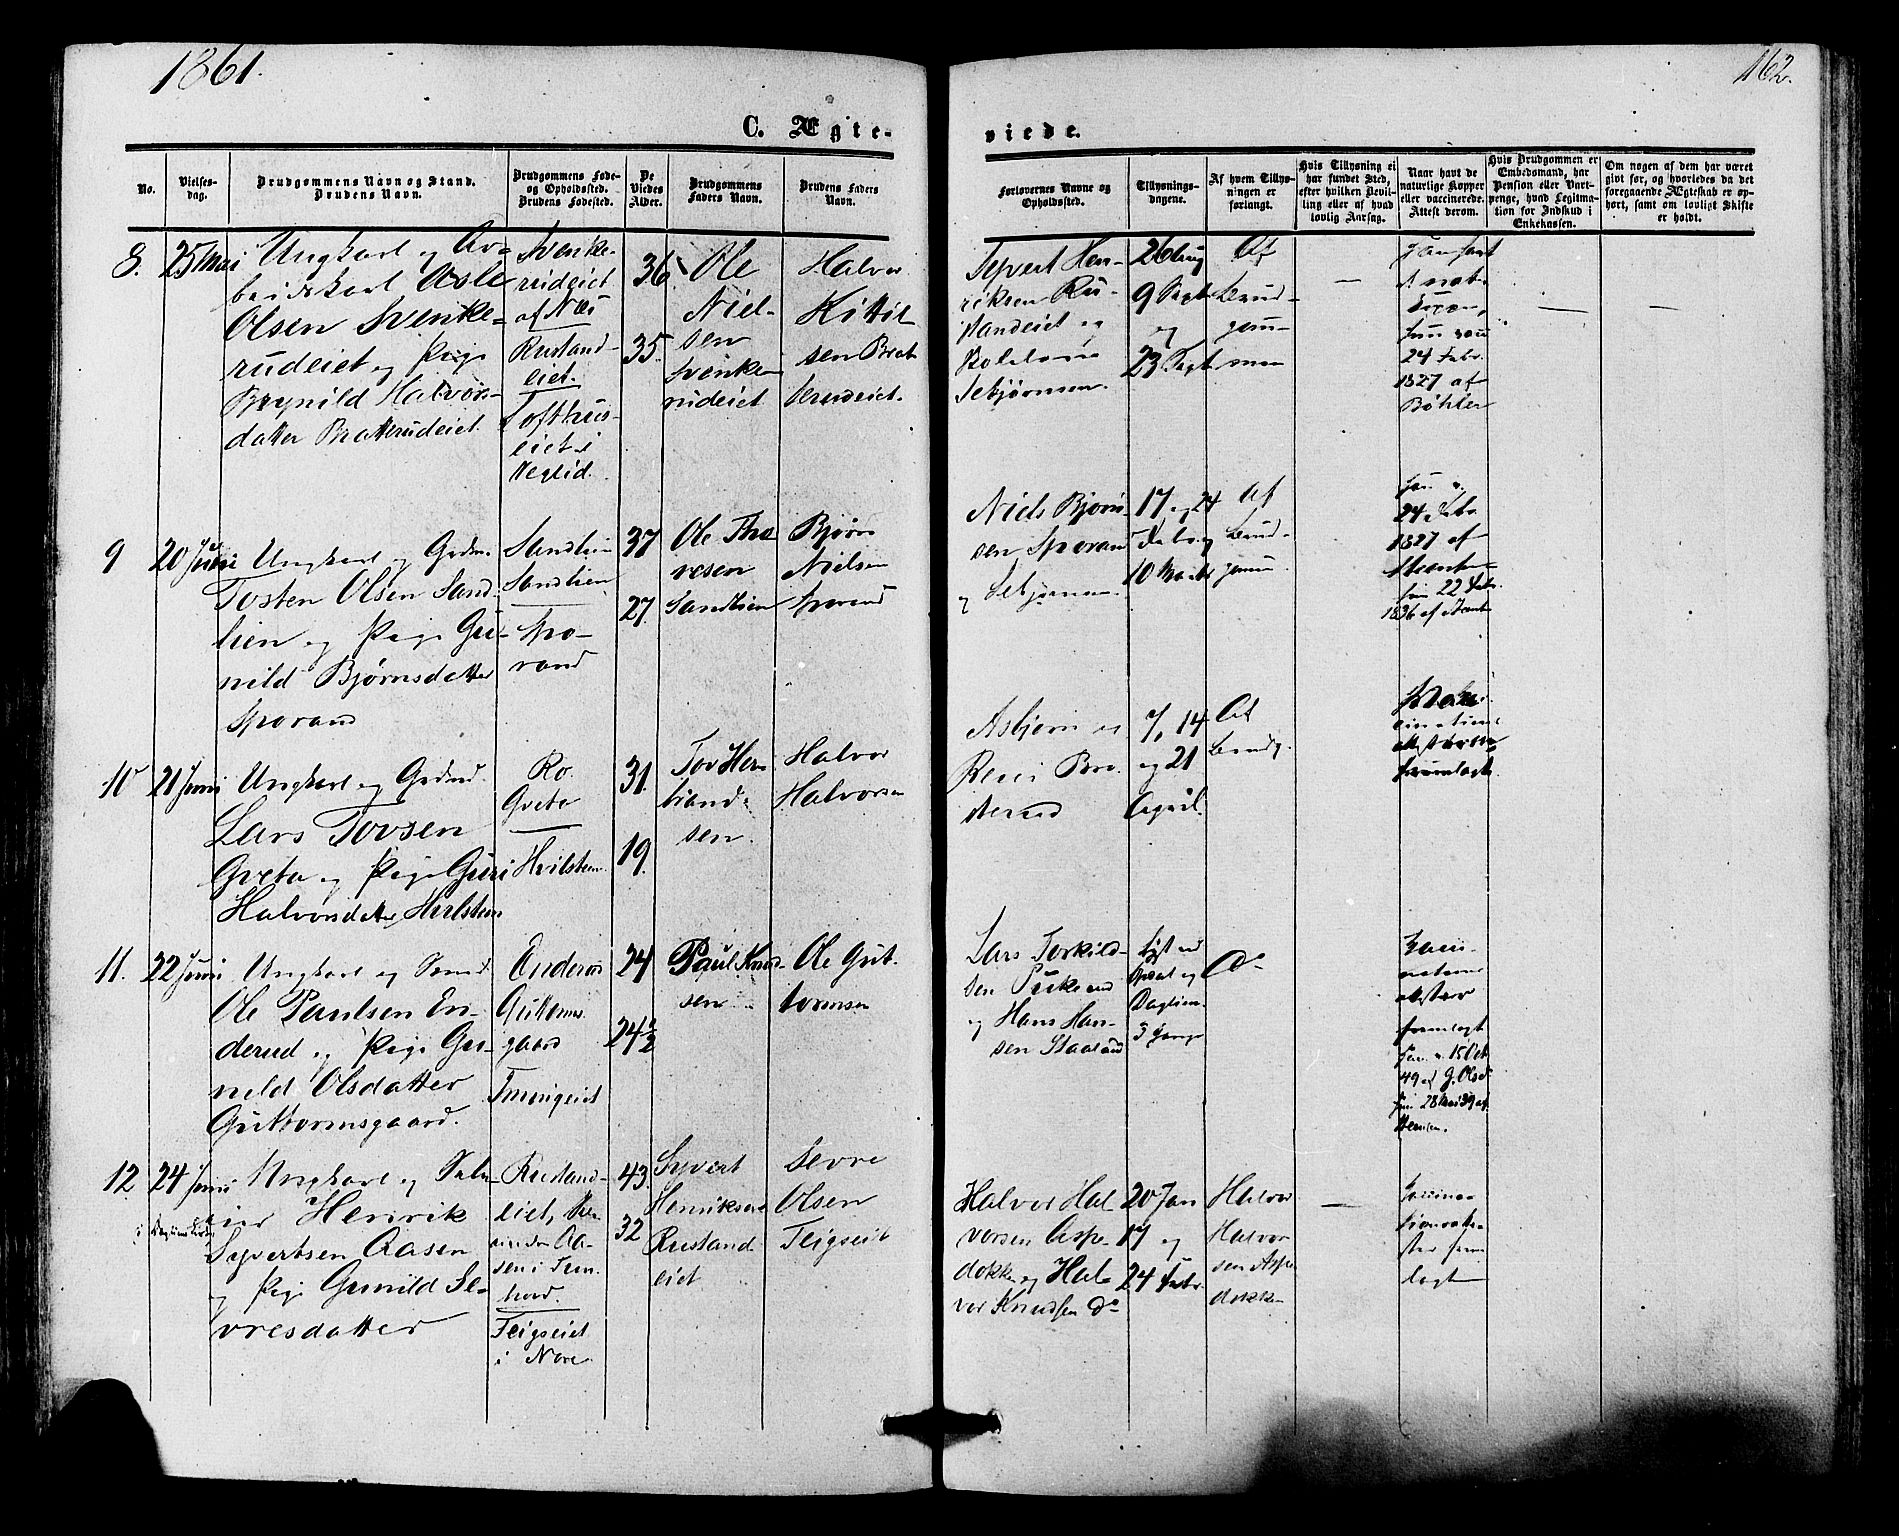 1861.
162.
C. Ægte-
viede.
No.
Vielses-
dag.
Brudgommens Navn og Stand.
Brudens Navn.
Brudgommens Føde-
og Opholdssted.
Brudens Fødested.
De
Viedes
Alder.
Brudgommens
Faders Navn.
Brudens Faders
Navn.
Forlovernes Navne og
Opholdssted.
Tillysnings-
dagene.
Af hvem Tillys-
ningen er
forlangt.
Hvis Tillysning ei
har fundet Sted,
efter hvilken Bevil-
ling eller af hvad
lovlig Aarsag.
Naar havt de
naturlige Kopper
eller vaccinerede.
Attest derom.
Hvis Brudgommen er
Embedsmand, har
Pension eller Vart-
penge, hvad Legitima-
tion for Indskud i
Enkekassen.
Om nogen af dem har været
givt før, og hvorledes da det
foregaaende Ægteskab er op-
hørt, samt om lovligt Skifte
er holdt.
8.
25 Mai
Ungkarl og Ar-
beidskarl Asle
Olsen Svenke-
rudeiet og Pige
Brynild Halvors-
datter Bratterudeiet.
Svenke-
rudeiet
af Næs
Rustand-
eiet.
Tofthus-
eiet i
Veglid.
36
35.
Ole
Niel-
sen
Svenke-
rudeiet
Halvor
Kittil-
sen Brat-
terudeiet.
Syvert Hen-
riksen Ru-
standeiet og
Sebjørnsen.
26 Aug
9 Sept
og
23 Sept
Af
Brud-
gom-
men
—
24 Febr.
1827 af
Bøhler
—
—
9
20 Juni
Ungkarl og Grdm.
Tosten Olsen Sand-
lien og Pige Gu-
nild Bjørnsdatter
Sporand
Sandlien
Sandlien
Spo-
rand
37
27.
Ole Tho
resen
Sandlien
Bjørn
Nielsen
Sporand
Niels Bjørn-
sen Sporan
og
17 og 24
Febr og
10 Marts
Af
Brud-
gom
24 Febr
1827 af
22 Febr
1836 af
10
21 Juni
Ungkarl og Grdmd.
Lars Tovsen
Gveta og Pige Guri
Halvorsdatter Hvilsteen
Ro.
Gveta
Hvilsteen
31.
19.
Tov Her-
brand-
sen.
Halvor
Halvorsen
Asbjørn og
7, 14
og 21
April.
Af
Brudg.
11.
22 Juni
Ungkarl og Smed
Ole Paulsen En-
derud og Pige Gu-
nild Olsdatter
Guttormsgaard.
Enderud
Guttorms-
gaard
24
24½
Paul Knud-
sen
Ole Gut-
tormsen
Lars Torkild-
sen
og Hans Han-
sen
Lyst ved
Opdal og
Daglien
3 Gange
Do
attester
fremlagt
15 Oct
49 af G. Olsen
28 Mai 39 af
12
24 Juni
Ungkarl og
Henrik
Syvertsen Aasen
og Pige Gunild Se-
vresdatter
Rustand-
eiet,
Aa-
sen i
Teigseiet
i Nore.
43.
32
Syvert
Henriksen
Rustand
eiet
Sevre
Olsen
Teigseiet
Halvor Hal
vorsen Aspe-
dokken og Hal-
vor Knudsen Do
20 Jan
17 og
24 Febr.
Halvor
Halvor
sen Aspe
dokken
—
Vaccina-
tionsatte-
ster frem
lagt